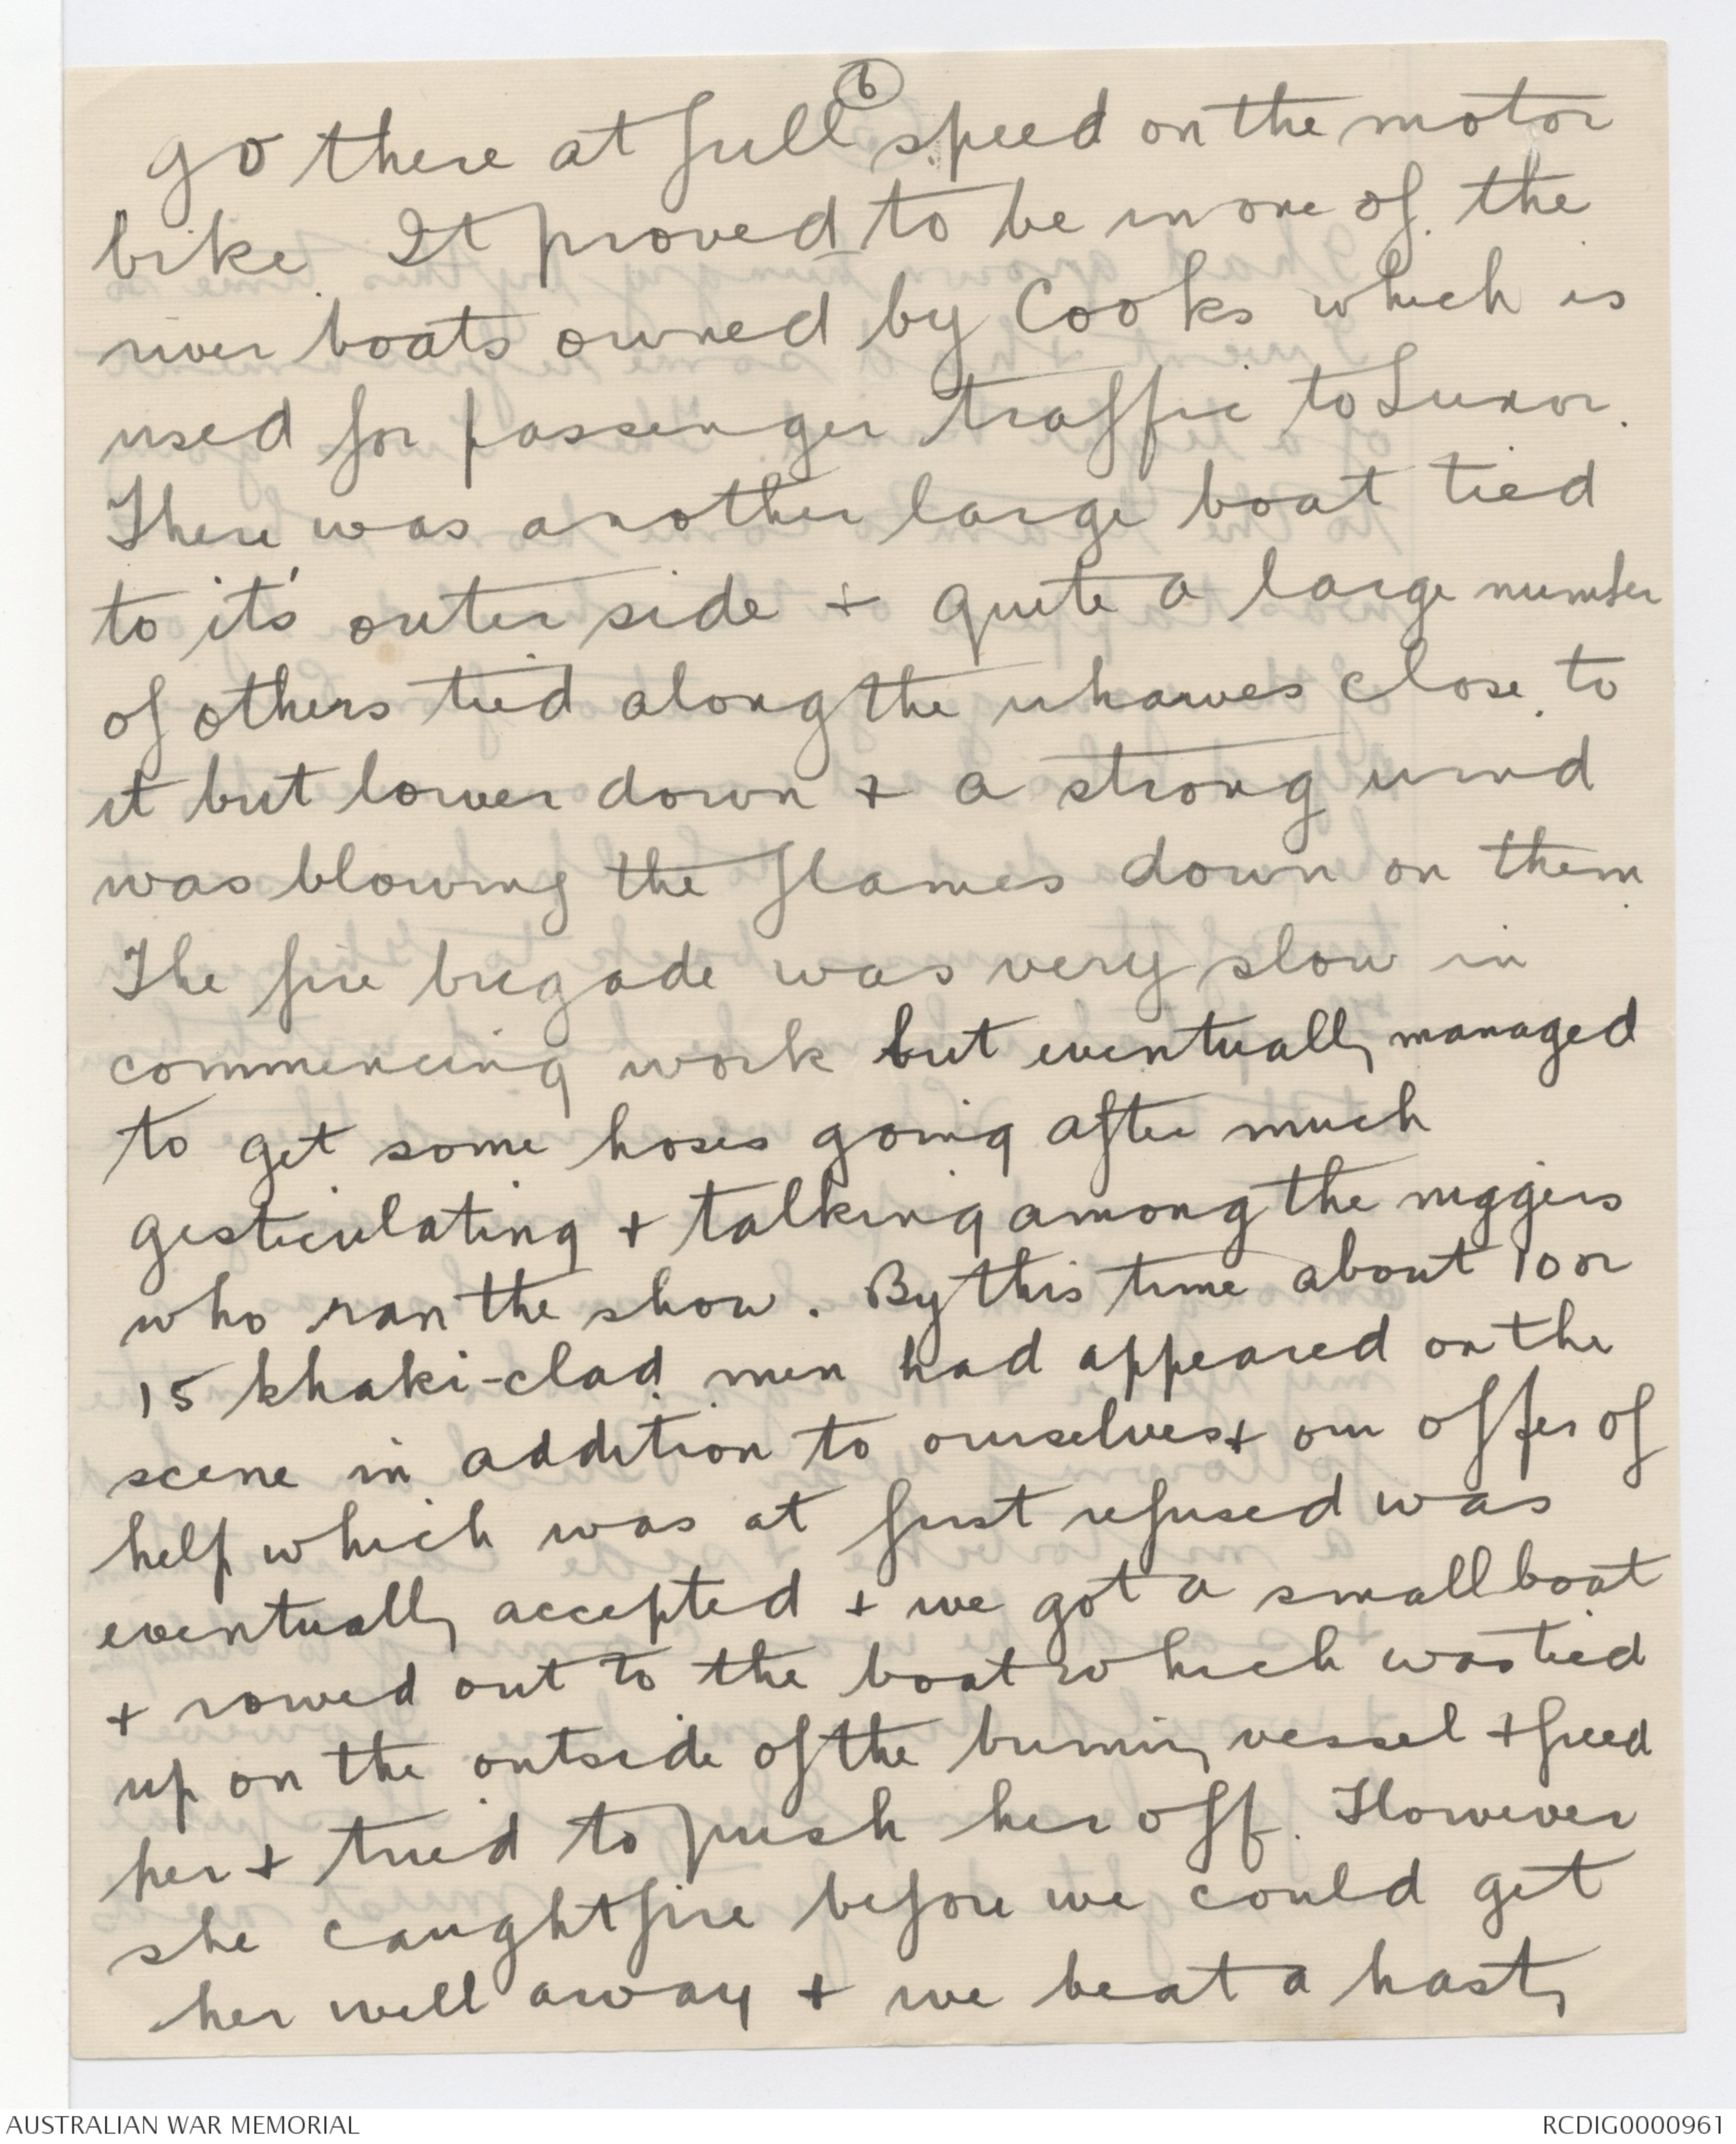 6
go there at full speed on the motor
bike. It proved to be in one of the
river boats owned by Cooks which is
used for passenger traffic to Luxor.
There was another large boat tied
to it's outer side + quite a large number
of others tied along the wharves close to
it but lower down + a strong wind
was blowing the flames down on them.
The fire brigade was very slow in
commencing work but eventually managed
to get some hoses going after much
gesticulating + talking among the niggers
who ran the show. By this time about 10 or
15 khaki-clad men had appeared on the
scene in addition to ourselves + our offer of
help which was at first refused was
eventually accepted + we got a small boat
+ rowed out to the boat which was tied
up on the outside of the burning vessel + freed
her + tried to push her off. However
she caught fire before we could get
her well away + we beat a hasty
AUSTRALIAN WAR MEMORIAL
RCDIG0000961